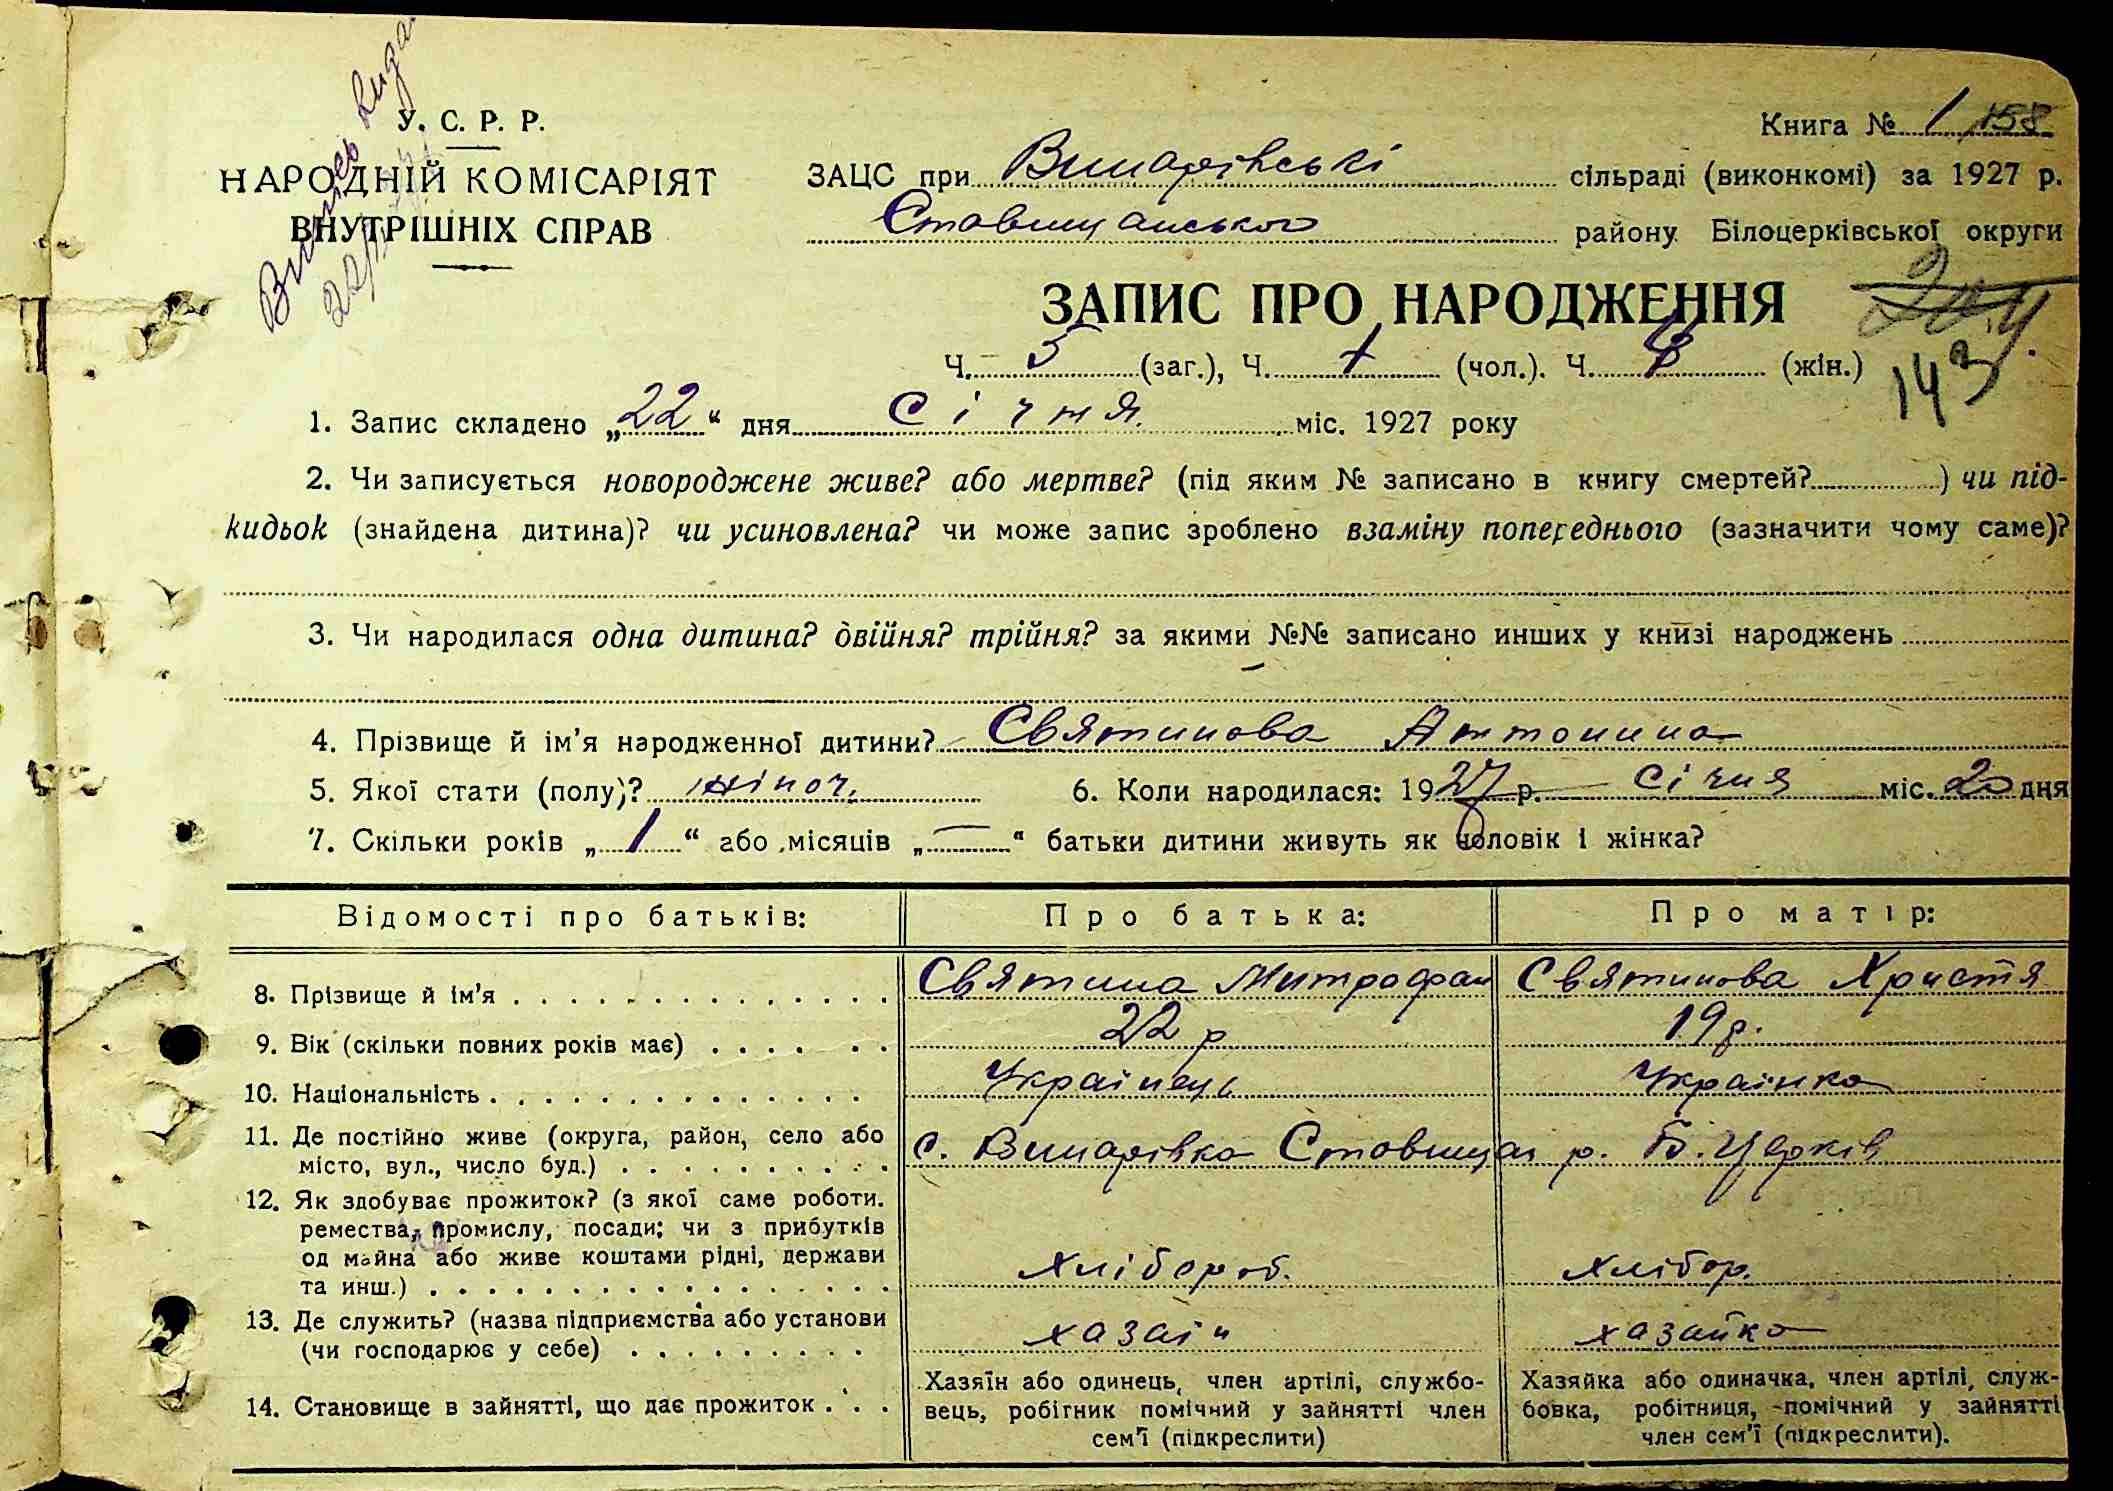 Випись вида
У. С. Р. Р.
НАРОДНІЙ КОМІСАРІЯТ
ВНУТРІШНІХ СПРАВ
Книга № 1 158
ЗАЦС при Винарівські сільраді (виконкомі) за 1927 р.
Ставищанського району Білоцерківської округи
ЗАПИС ПРО НАРОДЖЕННЯ
Ч. 5 (заг.), Ч. 1 (чол.). Ч. (жін.)
143
1. Запис складено „22“ дня Січня міс. 1927 року
2. Чи записується новороджене живе? або мертве? (під яким № записано в книгу смертей? ) чи під-
кидьок (знайдена дитина)? чи усиновлена? чи може запис зроблено взаміну попереднього (зазначити чому саме)?
3. Чи народилася одна дитина? двійня? трійня? за якими №№ записано инших у книзі народжень
4. Прізвище й ім'я народженної дитини? Святинова Антонина
5. Якої стати (полу)? жіноч. 6. Коли народилася: 1927 р. Січня міс. 20 дня
7. Скільки років „1“ або місяців „—“ батьки дитини живуть як чоловік і жінка?
Відомості про батьків: Про батька: Про матір:
8. Прізвище й ім'я Святина Митрофан Святинова Христя
9. Вік (скільки повних років має) 22 р 19 р.
10. Національність Украінець Украінка
11. Де постійно живе (округа, район, село або
місто, вул., число буд.) с. Винарівка Ставищан р. Б. Церків
12. Як здобуває прожиток? (з якої саме роботи.
ремества, промислу, посади; чи з прибутків
од майна або живе коштами рідні, держави
та инш.) Хлібороб. Хлібор.
13. Де служить? (назва підприємства або установи
(чи господарює у себе) хазаін хазайка
14. Становище в зайнятті, що дає прожиток
Хазяїн або одинець, член артілі, службо-
вець, робітник помічний у зайнятті член
сем'ї (підкреслити)
Хазяйка або одиначка, член артілі, служ-
бовка, робітниця, помічний у зайнятті
член сем'ї (підкреслити).